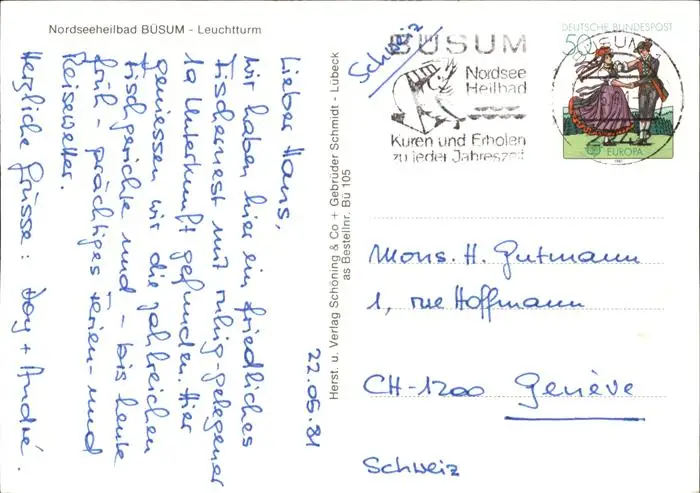 Nordseeheilbad BÜSUM - Leuchtturm
22.05.81
Lieber Hans,
Wir haben hier ein friedliches
Fischernest mit ruhig-gelegener
1a Unterkunft gefunden. Hier
geniessen wir die zahlreichen
Fischgerichte und - bis heute
früh - prächtiges Ferien- und
Reisewetter.
Herzliche Grüsse: + André.
Herst. u. Verlag Schöning & Co + Gebrüder Schmidt - Lübeck
as Bestellnr. Bü 105
Schweiz
BÜSUM
Nordsee
Heilbad
Kuren und Erholen
zu jeder Jahreszeit
DEUTSCHE BUNDESPOST
50
BÜSUM
EUROPA
1981
Mons. H. Gutmann
1, rue Hoffmann
CH-1200 Genève
Schweiz